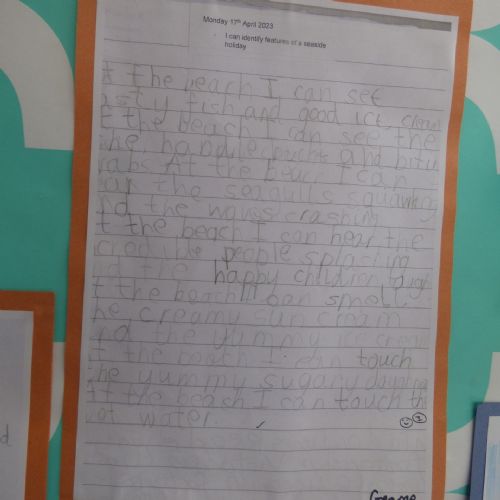 Monday 17th April 2023
I can identify features of a seaside
holiday
t the beach I can see
sty fish and good ice cream
t the beach I can see the
the
At the beach I can
the seagulls squawking
nd the waves crashing
t the beach I can hear the
credible people splashing
nd the happy children laugh
t the beach I can smell
he creamy sun cream
nd the yummy ice cream
t the beach I can touch
he yummy sugary
At the beach I can touch the
water.
d